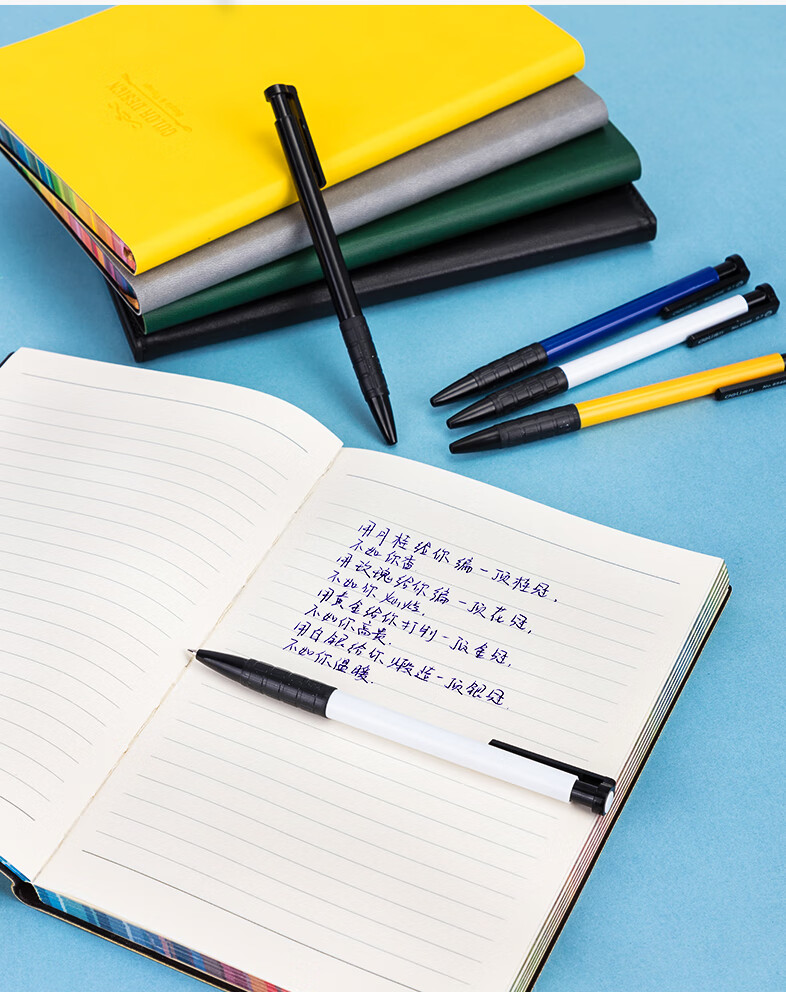 COLOR DESIGN
用月桂给你编一顶桂冠，
不如你香
用玫瑰给你编一顶花冠，
不如你灿烂.
用黄金给你打制一顶金冠，
不如你高贵.
用白银给你煅造一顶银冠
不如你温暖.